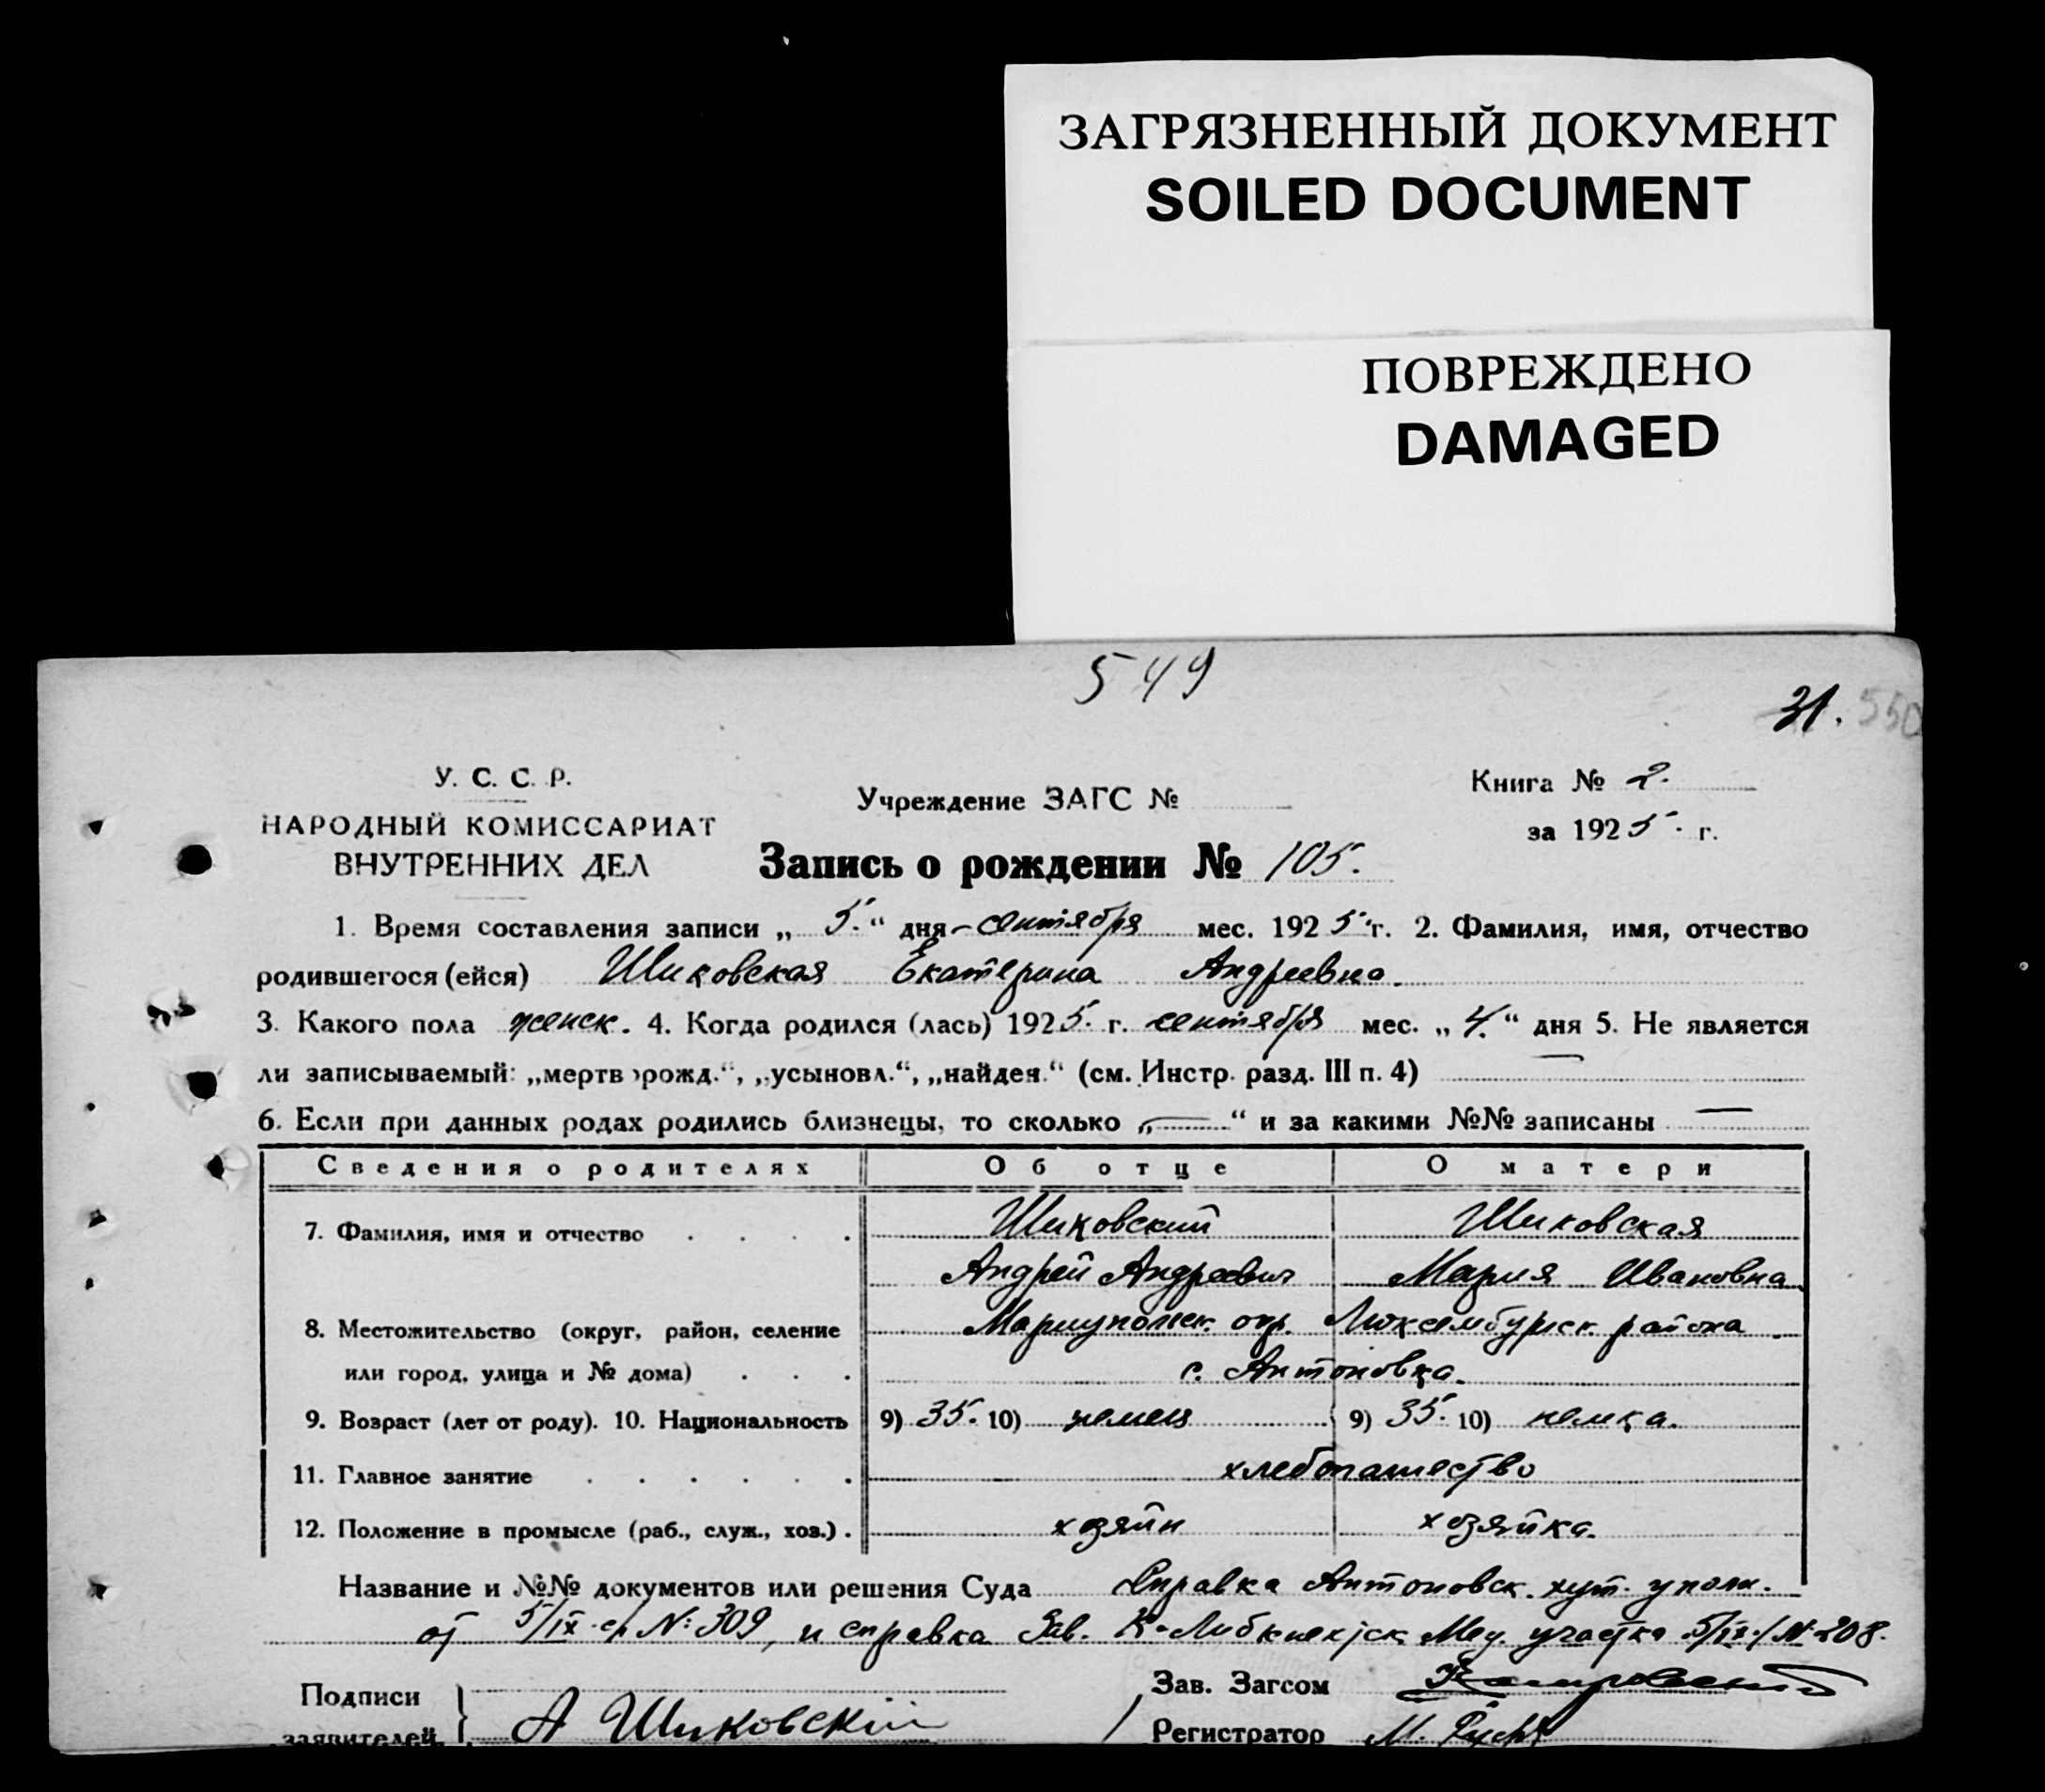 ЗАГРЯЗНЕННЫЙ ДОКУМЕНТ
SOILED DOCUMENT
ПОВРЕЖДЕНО
DAMAGED
549
31. 550
У. С. С. Р.
НАРОДНЫЙ КОМИССАРИАТ
ВНУТРЕННИХ ДЕЛ
Учреждение ЗАГС №
Книга № 2.
за 1925. г.
Запись о рождении № 105.
1. Время составления записи „ 5. “ дня сентября мес. 1925 г. 2. Фамилия, имя, отчество
родившегося (ейся) Шиковская Екатерина Андреевна.
3. Какого пола женск. 4. Когда родился (лась) 1925. г. сентября мес. „ 4. “ дня 5. Не является
ли записываемый: „мертворожд.“, „усыновл.“, „найден.“ (см. Инстр. разд. III п. 4) —
6. Если при данных родах родились близнецы, то сколько „—“ и за какими №№ записаны —
Сведения о родителях Об отце О матери
7. Фамилия, имя и отчество . . . . Шиковский Шиковская
Андрей Андреевич Мария Ивановна
8. Местожительство (округ, район, селение Мариупольск. окр. Люксембургск. района
или город, улица и № дома) . . . с. Антоновка.
9. Возраст (лет от роду). 10. Национальность 9) 35. 10) немец 9) 35. 10) немка.
11. Главное занятие . . . . . . хлебопашество
12. Положение в промысле (раб., служ., хоз.) . хозяин хозяйка.
Название и №№ документов или решения Суда Справка Антоновск. хут. уполн.
от 5/IX с/ №: 309, и справка Зав. К-Либкнехтск Мед. участка 5/IX./ № 208.
Подписи
заявителей
А Шиковский
Зав. Загсом
Регистратор М.